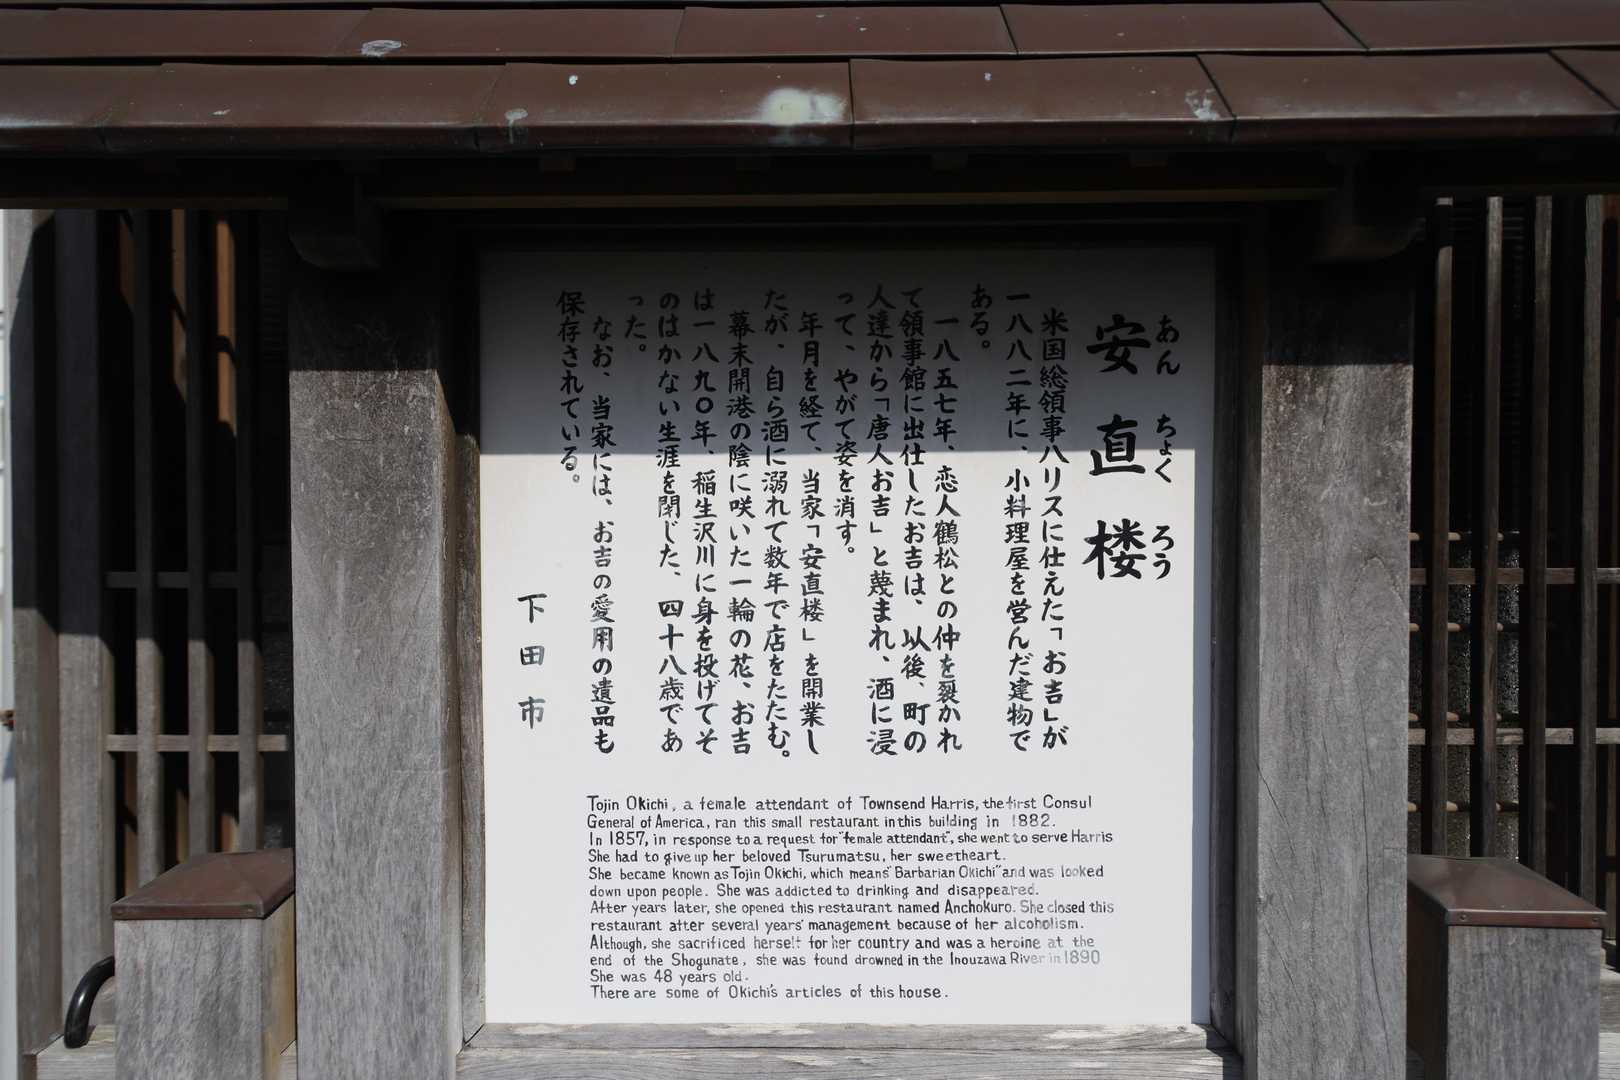 安直楼
あんちょくろう
米国総領事ハリスに仕えた「お吉」が
一八八二年に、小料理屋を営んだ建物で
ある。
一八五七年、恋人鶴松との仲を裂かれ
て領事館に出仕したお吉は、以後、町の
人達から「唐人お吉」と蔑まれ、酒に浸
って、やがて姿を消す。
年月を経て、当家「安直楼」を開業し
たが、自ら酒に溺れて数年で店をたたむ。
幕末開港の陰に咲いた一輪の花、お吉
は一八九〇年、稲生沢川に身を投げてそ
のはかない生涯を閉じた、四十八歳であ
った。
なお、当家には、お吉の愛用の遺品も
保存されている。
下田市
Tojin Okichi, a female attendant of Townsend Harris, the first Consul
General of America, ran this small restaurant in this building in 1882.
In 1857, in response to a request for "female attendant", she went to serve Harris
She had to give up her beloved Tsurumatsu, her sweetheart.
She became known as Tojin Okichi, which means "Barbarian Okichi" and was looked
down upon people. She was addicted to drinking and disappeared.
After years later, she opened this restaurant named Anchokuro. She closed this
restaurant after several years' management because of her alcoholism.
Although, she sacrificed herself for her country and was a heroine at the
end of the Shogunate, she was found drowned in the Inouzawa River in 1890
She was 48 years old.
There are some of Okichi's articles of this house.